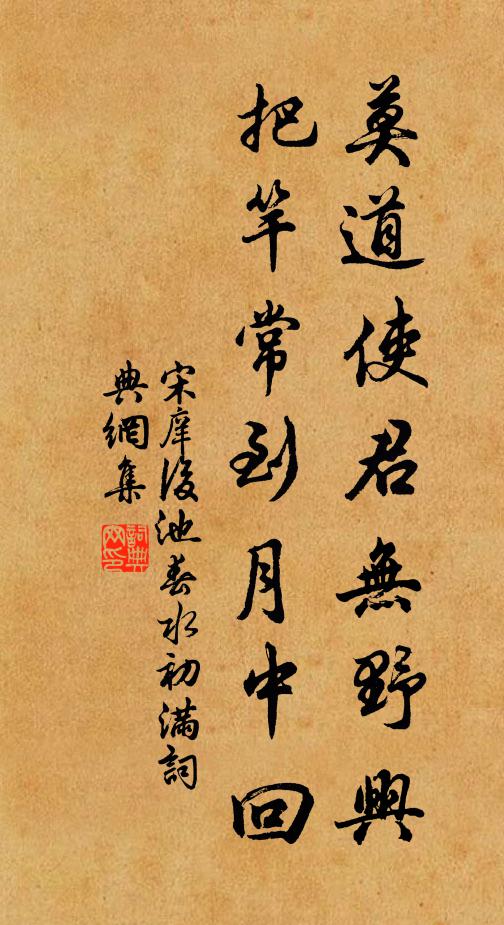 莫道使君無野興
把竿常到月中回
宋庠後池春水初滿詞
典網集
詞典
網印